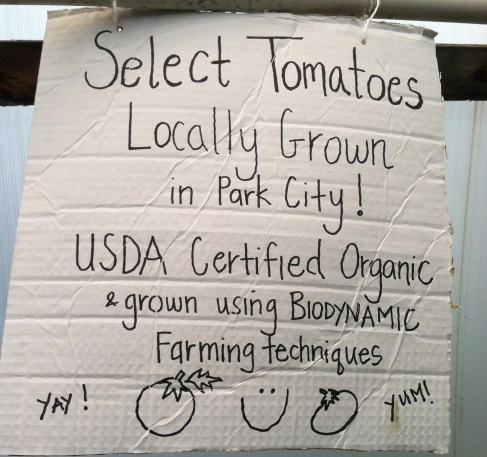 Select Tomatoes
Locally Grown
in Park City!
USDA Certified Organic
& grown using BIODYNAMIC
Farming techniques
YAY! YUM!